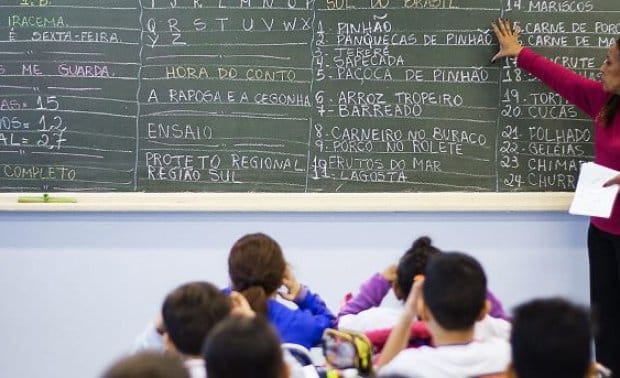 IRACEMA.
É SEXTA-FEIRA.
ME GUARDA.
= 15
= 12
= 27
COMPLETO
J K L M N O P
Q R S T U V W X
Y Z
HORA DO CONTO
A RAPOSA E A CEGONHA
ENSAIO
PROTETO REGIONAL
REGIÃO SUL
SUL DO BRASIL
1. PINHÃO
2. PANQUECAS DE PINHÃO
3. TERERÉ
4. SAPECADA
5. PAÇOCA DE PINHÃO
6. ARROZ TROPEIRO
7 - BARREADO
8. CARNEIRO NO BURACO
9. PORCO NO ROLETE
10. FRUTOS DO MAR
11. LAGOSTA
14. MARISCOS
15. CARNE DE PORCO
16. CARNE DE MAR
17.
18.
19. TORT
20. CUCAS
21. FOLHADO
22. GELÉIAS
23. CHIMA
24. CHURR